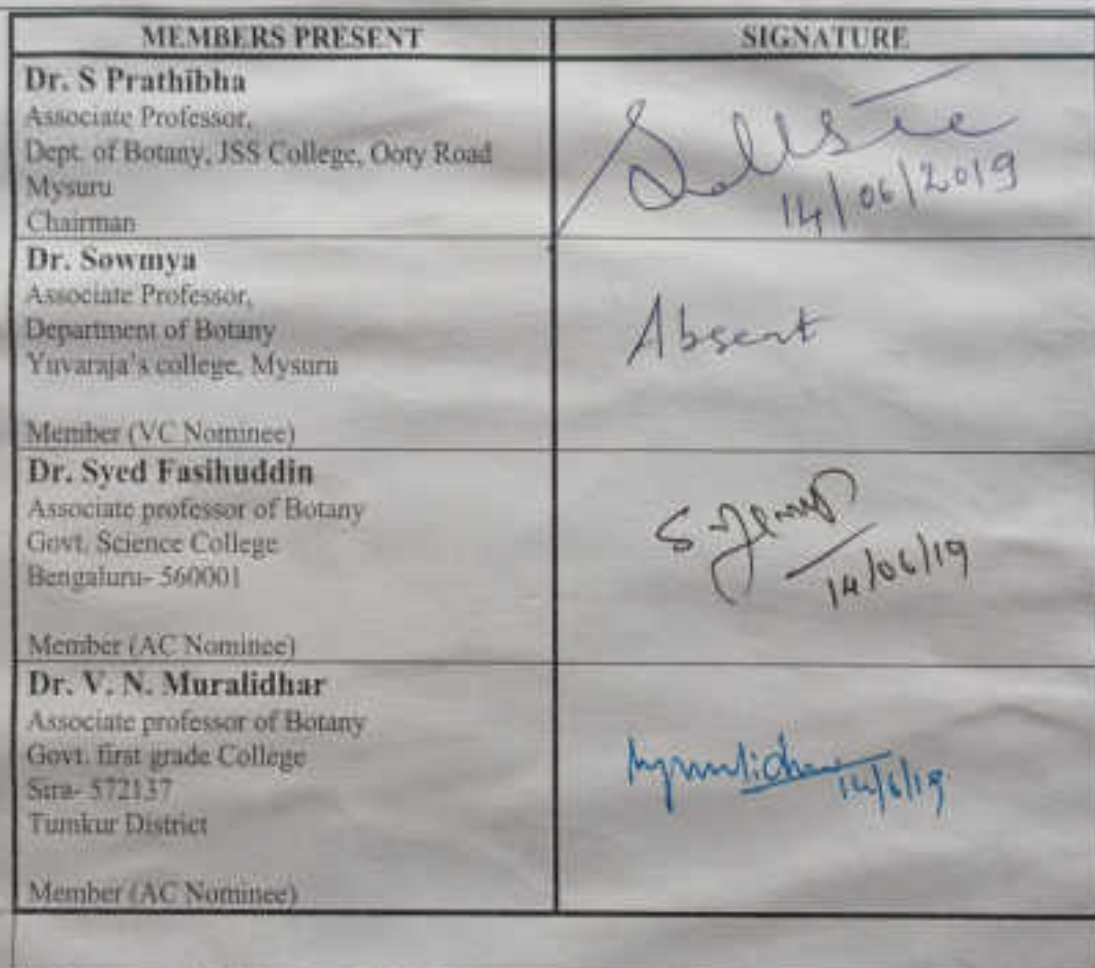 MEMBERS PRESENT
SIGNATURE
Dr. S Prathibha
Associate Professor,
Dept. of Botany, JSS College, Ooty Road
Mysuru
Chairman
14/06/2019
Dr. Sowmya
Associate Professor,
Department of Botany
Yuvaraja's college, Mysuru
Member (VC Nominee)
Absent
Dr. Syed Fasihuddin
Associate professor of Botany
Govt. Science College
Bengaluru- 560001
Member (AC Nominee)
14/06/19
Dr. V. N. Muralidhar
Associate professor of Botany
Govt. first grade College
Sira- 572137
Tumkur District
Member (AC Nominee)
14/6/19